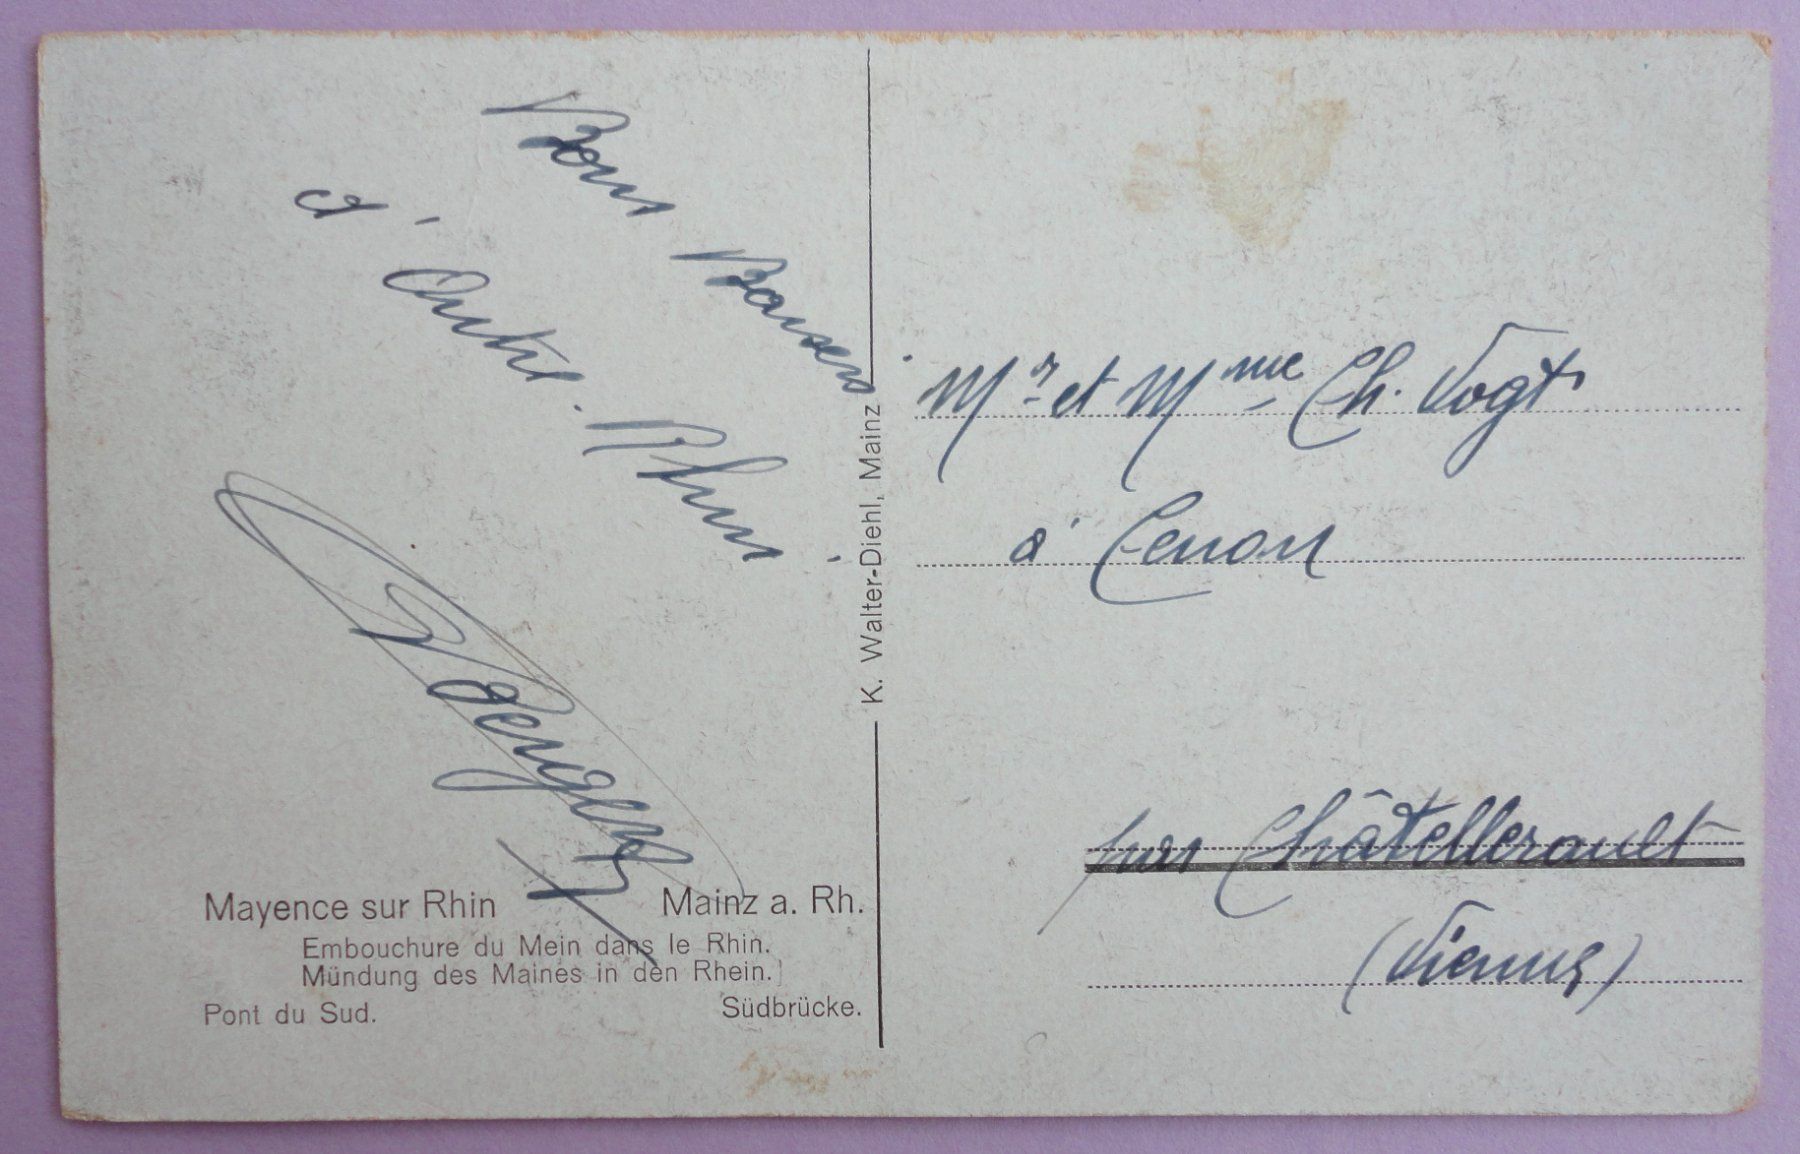 Bons Baisers
d'Outre-Rhin
K. Walter-Diehl, Mainz
Mr et Mme Ch. Vogt
à Cenon
par Châtellerault
(Vienne)
Mayence sur Rhin Mainz a. Rh.
Embouchure du Mein dans le Rhin.
Mündung des Maines in den Rhein.
Pont du Sud. Südbrücke.